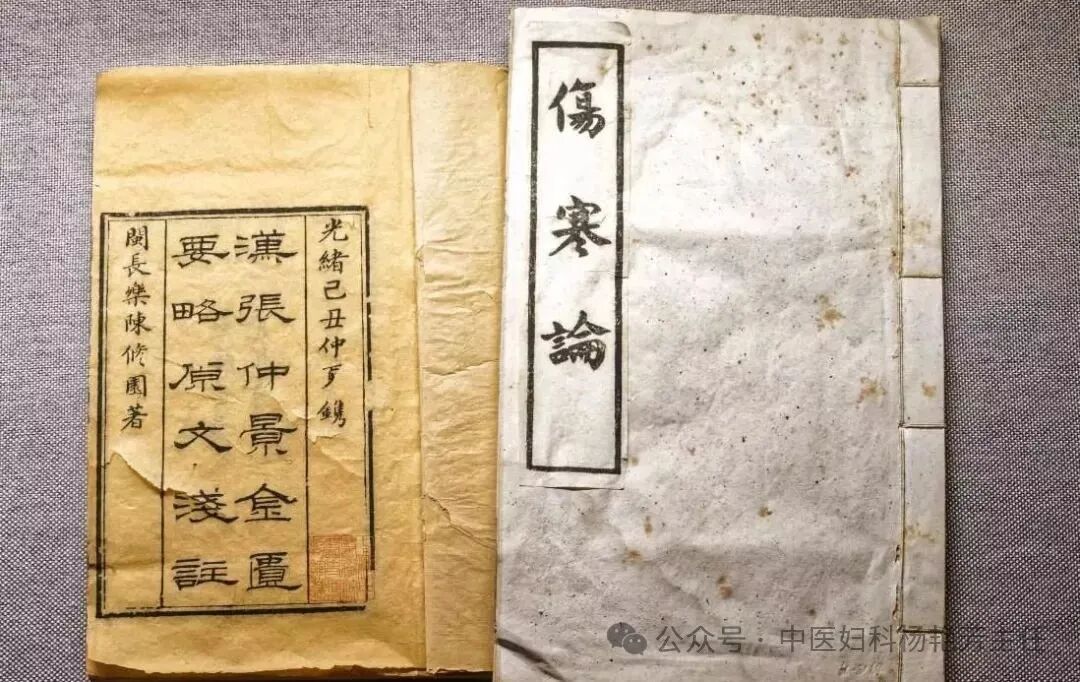 光緒己丑仲𡕒鐫
漢張仲景金匱
要略原文淺註
閩長樂陳修園著
傷寒論
公众号·中医妇科杨艳芳主任